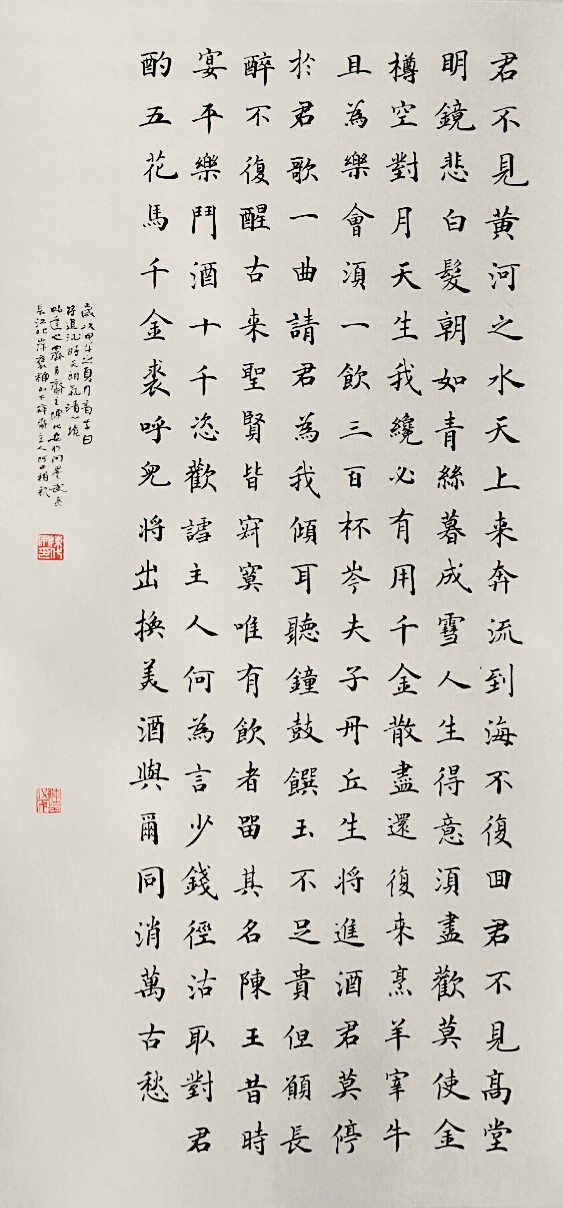 君不見黃河之水天上来奔流到海不復囬君不見髙堂
明鏡悲白髮朝如青絲暮成雪人生得意湏盡歡莫使金
樽空對月天生我纔必有用千金散盡還復来烹羊宰牛
且為樂會湏一飲三百杯岑夫子丹丘生将進酒君莫停
扵君歌一曲請君為我傾耳聽鐘鼓饌玉不足貴但願長
醉不復醒古来聖賢皆寂寞唯有飲者留其名陳王昔時
宴平樂鬥酒十千恣歡謔主人何為言少錢徑沽取對君
酌五花馬千金裘呼兒将出換美酒與爾同消萬古愁
歲次甲午之夏月書李白
将進酒時天朗氣清